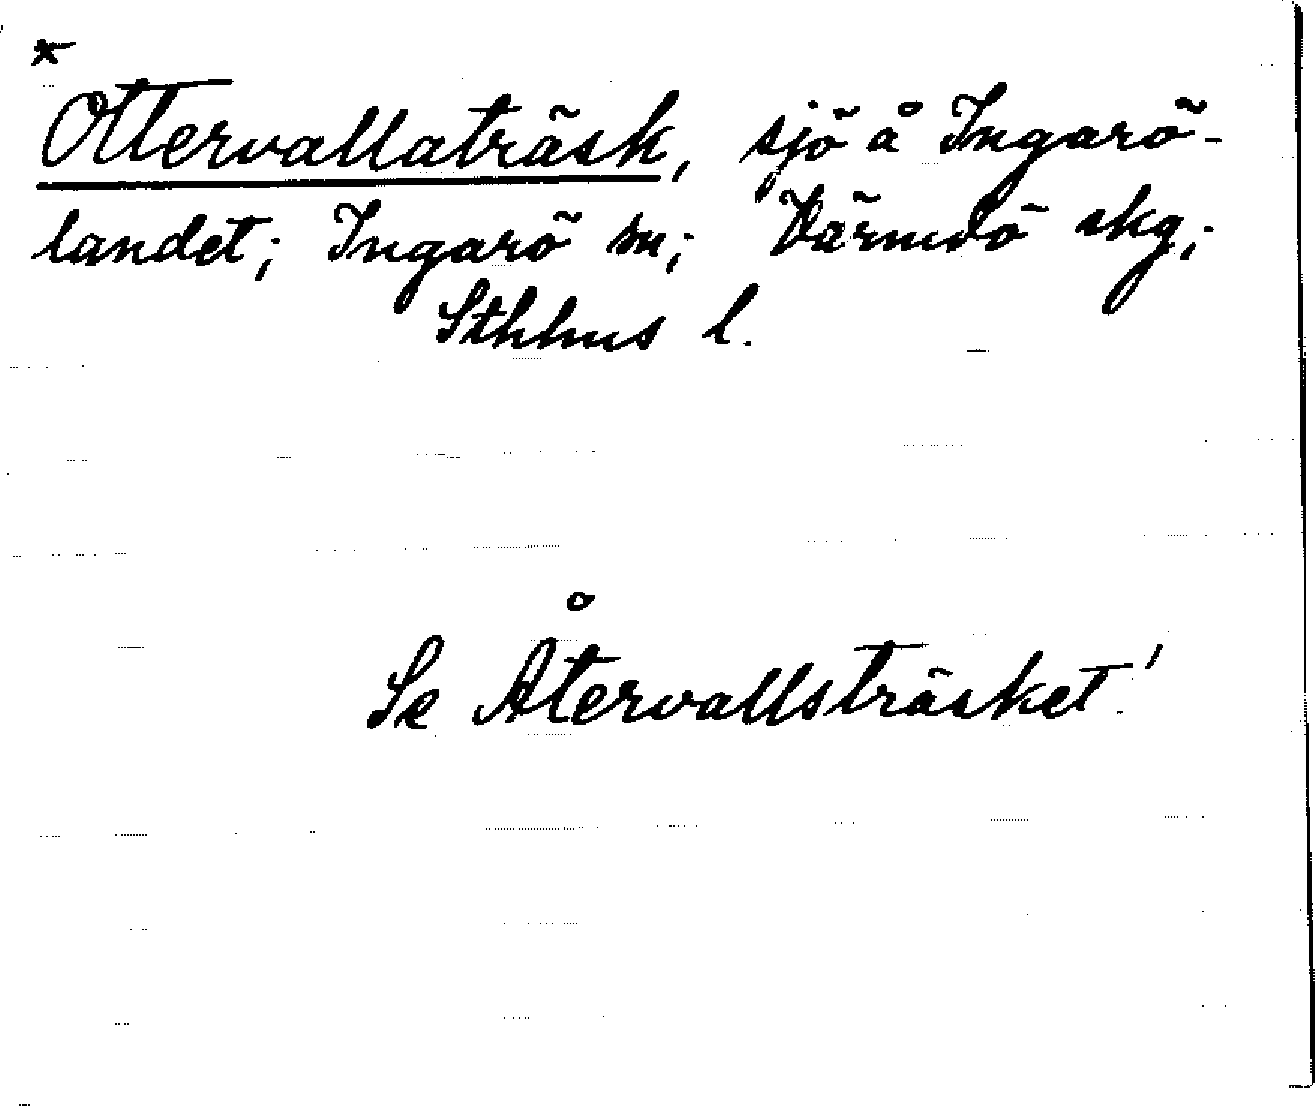 *
Ottervallaträsk, sjö å Ingarö-
landet; Ingarö sn; Värmdö skg;
Sthlms l.
Se Återvallsträsket!